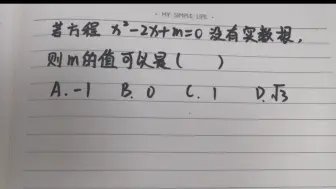 MY SIMPLE LIFE
若方程 x²-2x+m=0 没有实数根,
则m的值可以是( )
A.-1 B. 0 C. 1 D.√3